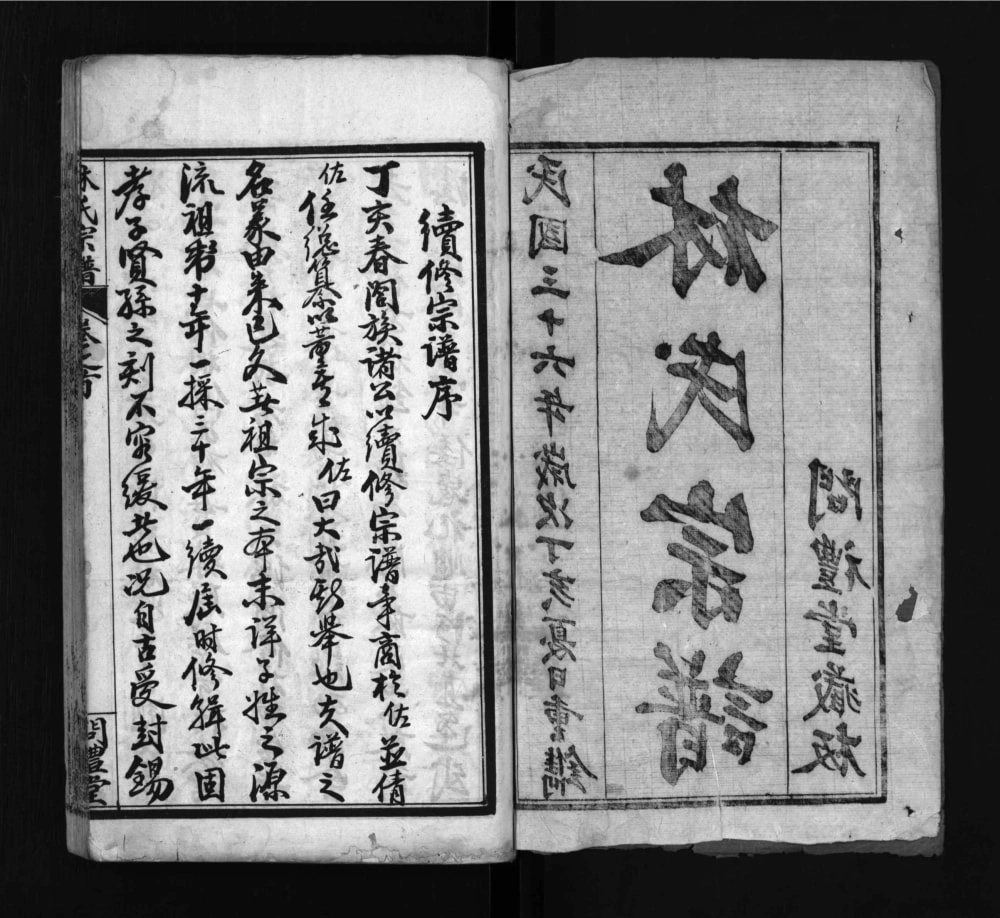 民國三十六年歲次丁亥夏日重鐫
林氏宗譜
問禮堂藏板
續修宗譜序
丁亥春閤族諸公以續修宗譜事商於佐並倩
佐任總纂以董成佐曰大哉斯舉也夫譜之
名義由來已久考祖宗之本末詳子姓之源
流祖制十年一採三十年一續屆时修輯此固
孝子賢孫之刻不容緩者也況自古受封錫
林氏宗譜 卷之首 問禮堂